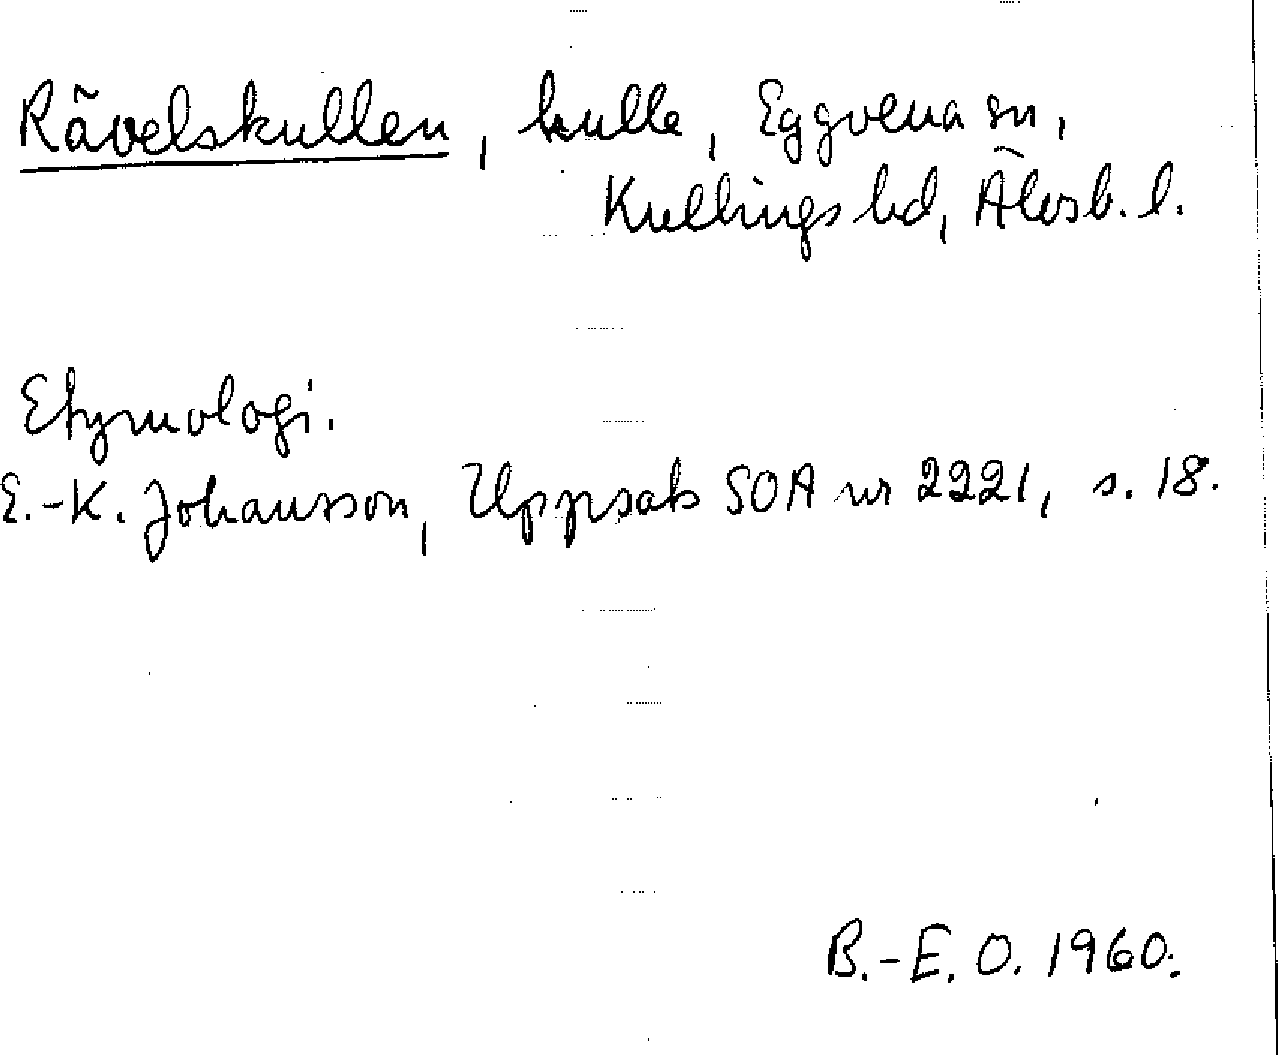 Rävelskullen, kulle, Eggvena sn,
Kullings hd, Älvsb. l.
Etymologi.
E.-K. Johansson, Uppsats SOA nr 2221, s. 18.
B.-E. O. 1960.